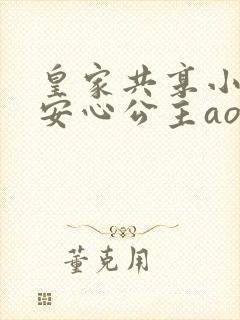 皇家共享小
安心公主ao
董克用